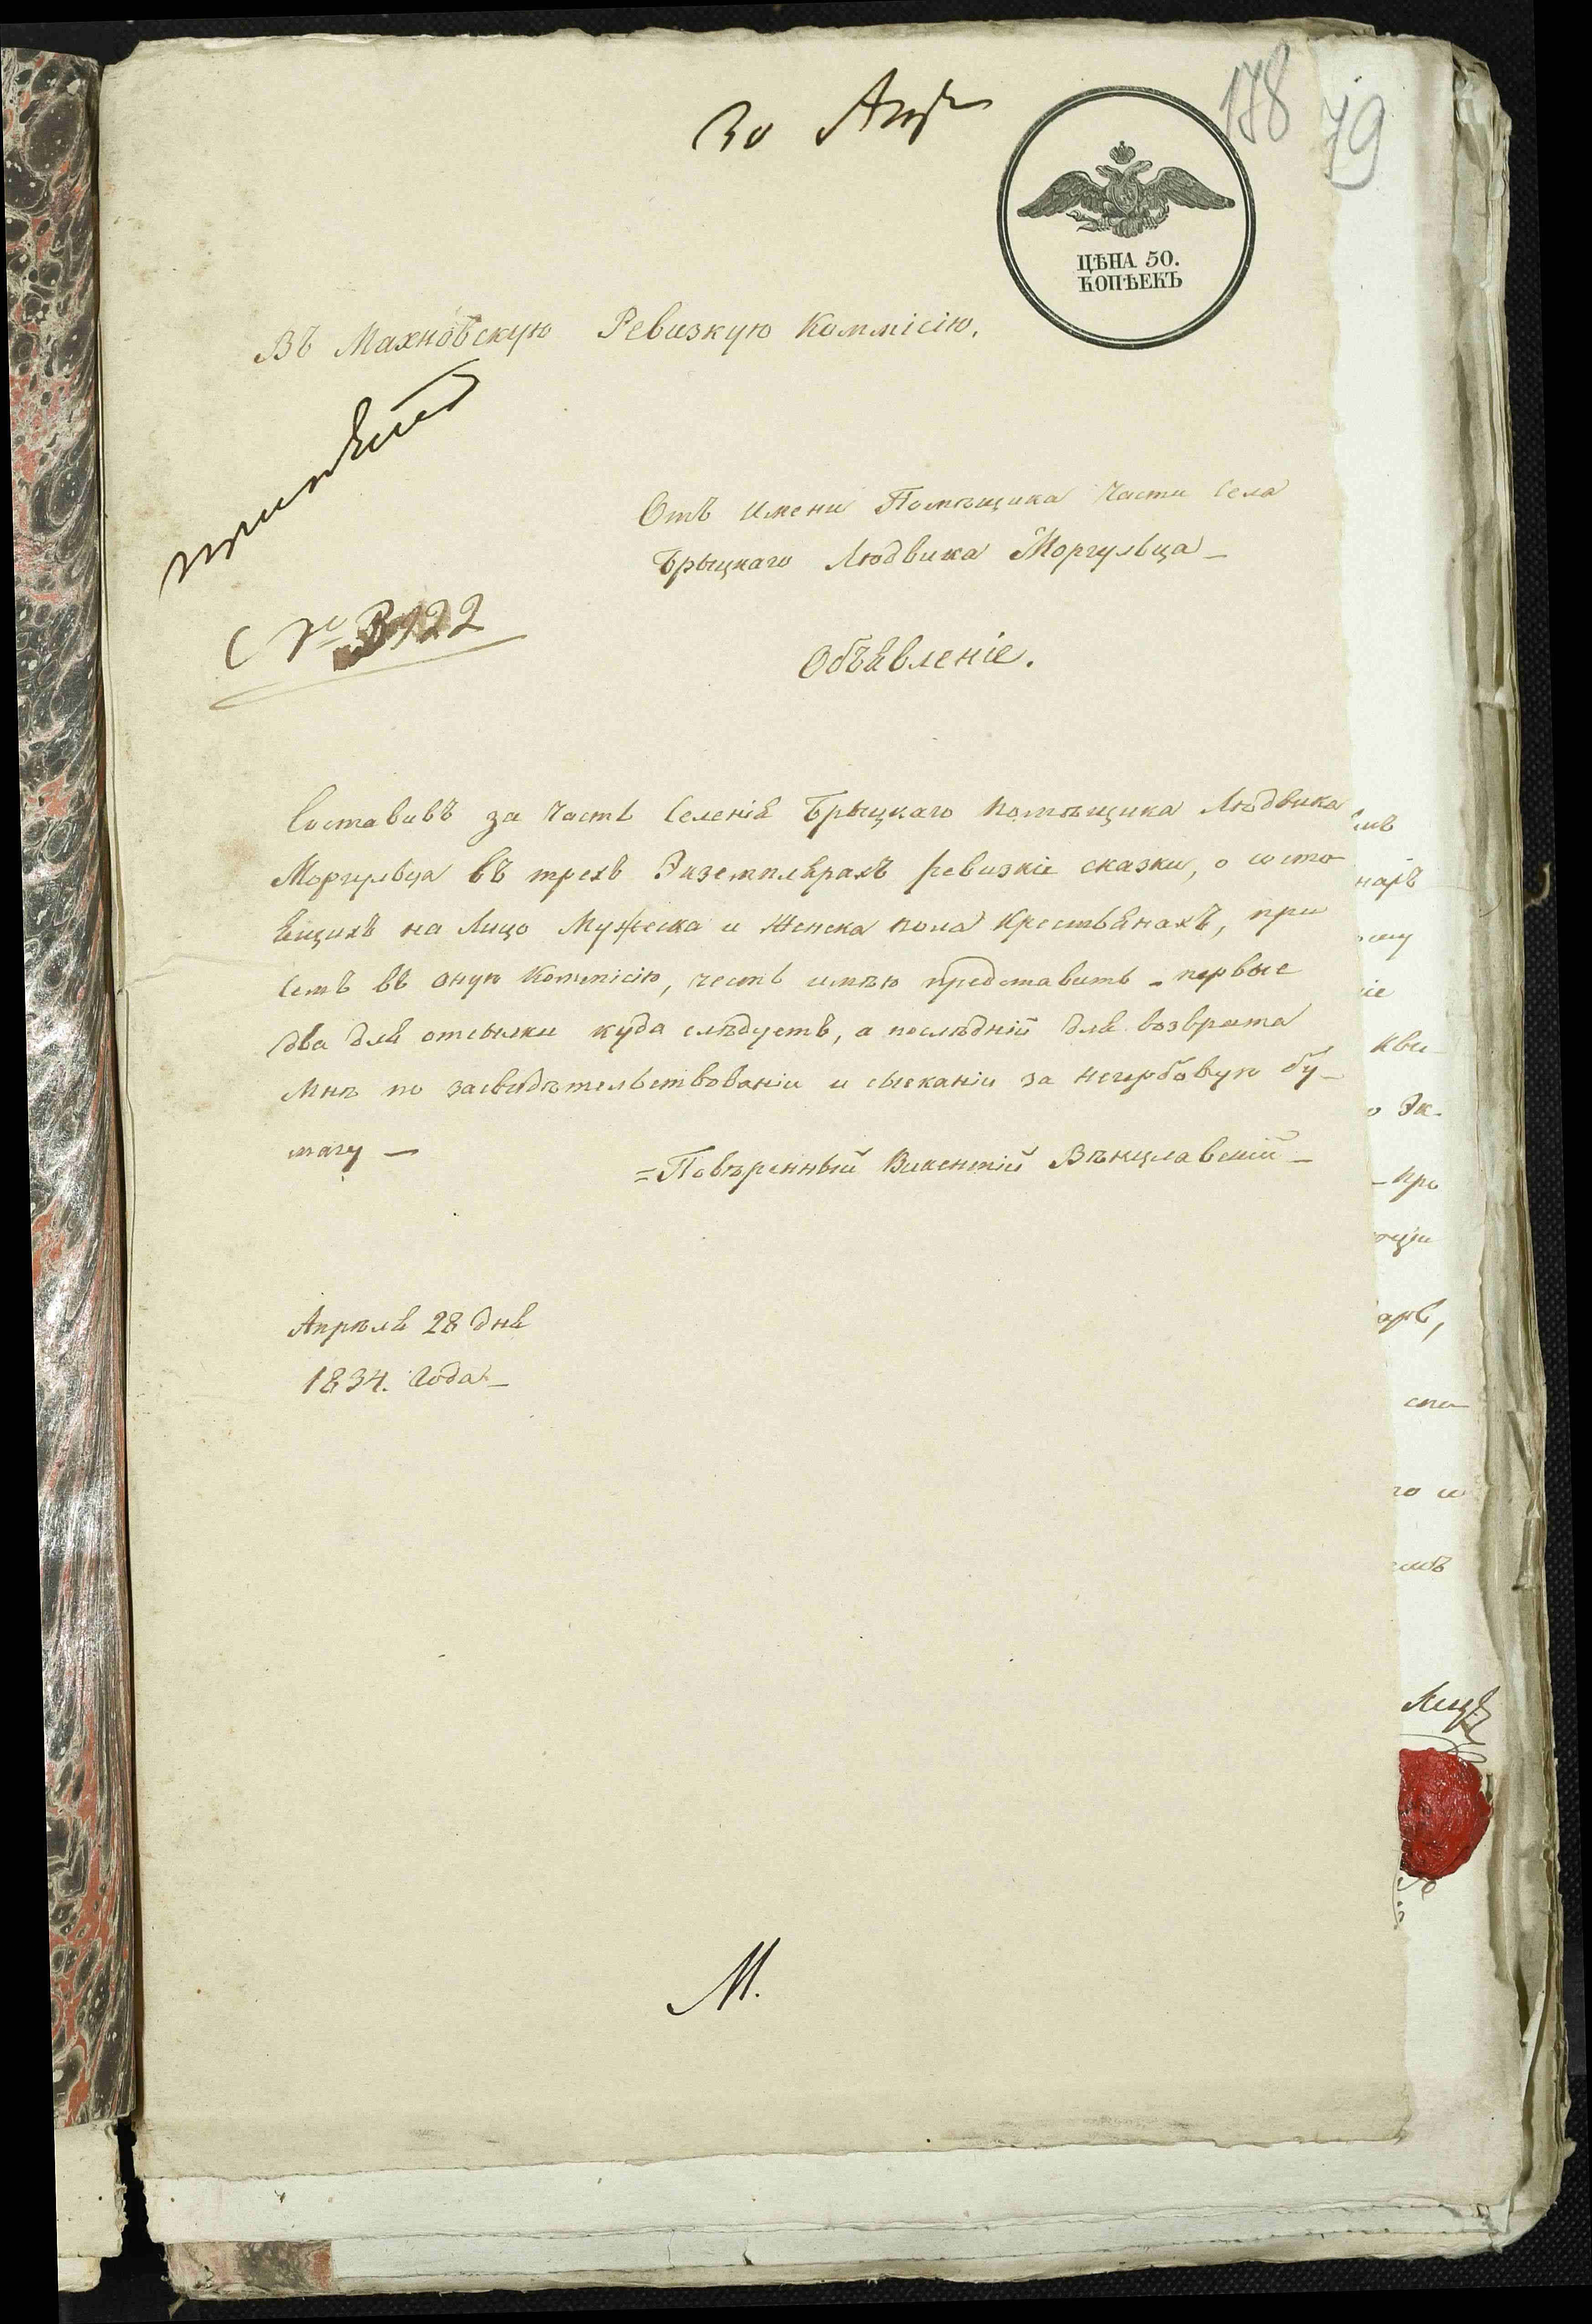 30 Апр
178
79
ЦѢНА 50.
КОПѢЕКЪ
Въ Махновскую Ревизкую Коммісію.
Отъ имени Помѣщика Части Села
Брыцкаго Людвика Моргульца_
С № 122
Объявленіе.
Составивъ за Часть Селенія Брыцкаго помѣщика Людвика
Моргульца въ трехъ Экземплярахъ ревизкіе сказки, о состо
ящихъ на Лицо Мужеска и Женска пола Крестьянахъ, при
семъ въ оную Коммісію, честь имѣю представить - первые
два для отсылки куда слѣдуетъ, а послѣдній для возврата
Мнѣ по засвидѣтельствованіи и сысканіи за негербовую бу_
магу —
=Повѣренный Викентій Вѣнцлавскій_
Апрѣля 28 дня
1834. Года_
М.